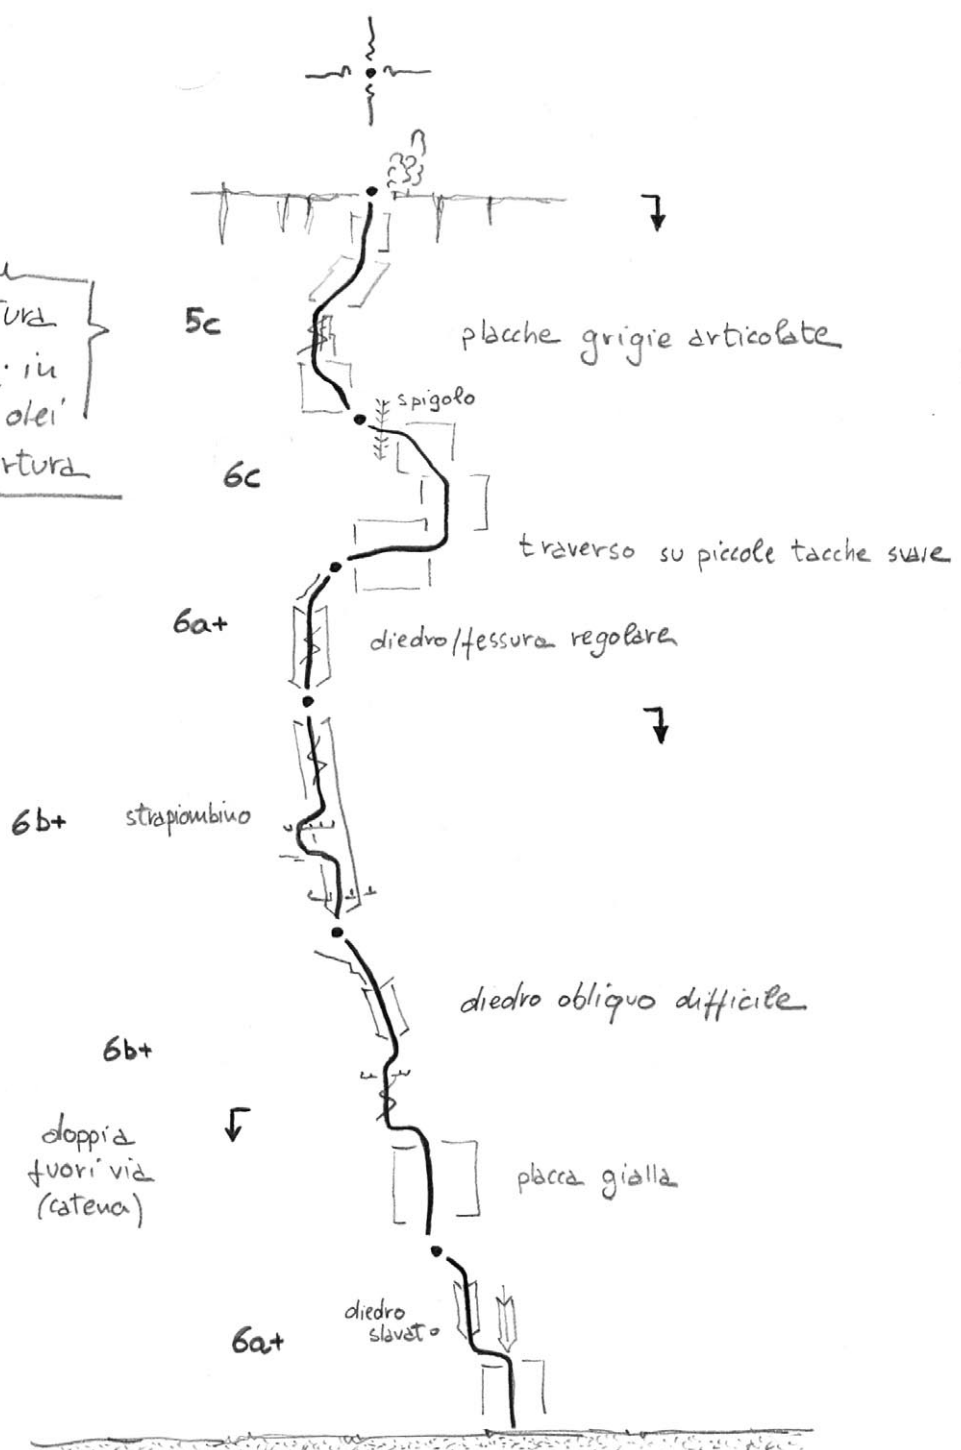 5c
placche grigie articolate
tura
in
dei
rtura
spigolo
6c
traverso su piccole tacche svase
6a+
diedro/fessura regolare
6b+
strapiombino
diedro obliquo difficile
6b+
doppia
fuori via
(catena)
placca gialla
diedro
slavato
6a+